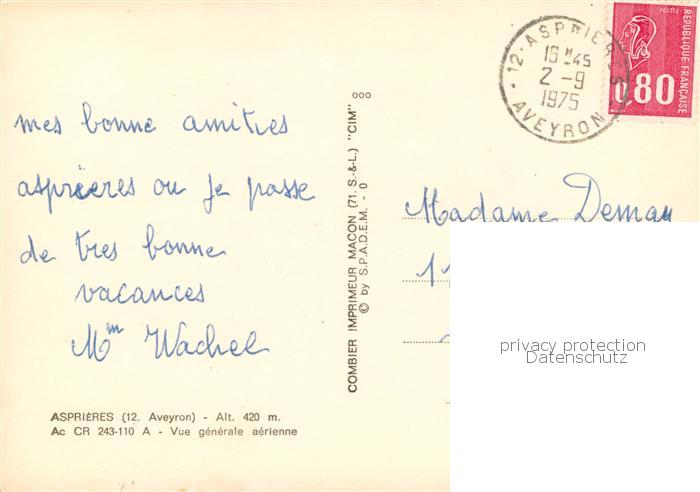 mes bonne amitres
asprieres ou Je passe
de tres bonne
vacances
Mm Wachel
ASPRIÈRES (12. Aveyron) - Alt. 420 m.
Ac CR 243-110 A - Vue générale aérienne
COMBIER IMPRIMEUR MACON (71. S.-&-L.) "CIM"
© by S.P.A.D.E.M. - 0
000
12 - ASPRIERES
16 H 45
2 - 9
1975
AVEYRON
REPUBLIQUE FRANÇAISE
POSTES
0.80
Madame Deman
11
privacy protection
Datenschutz